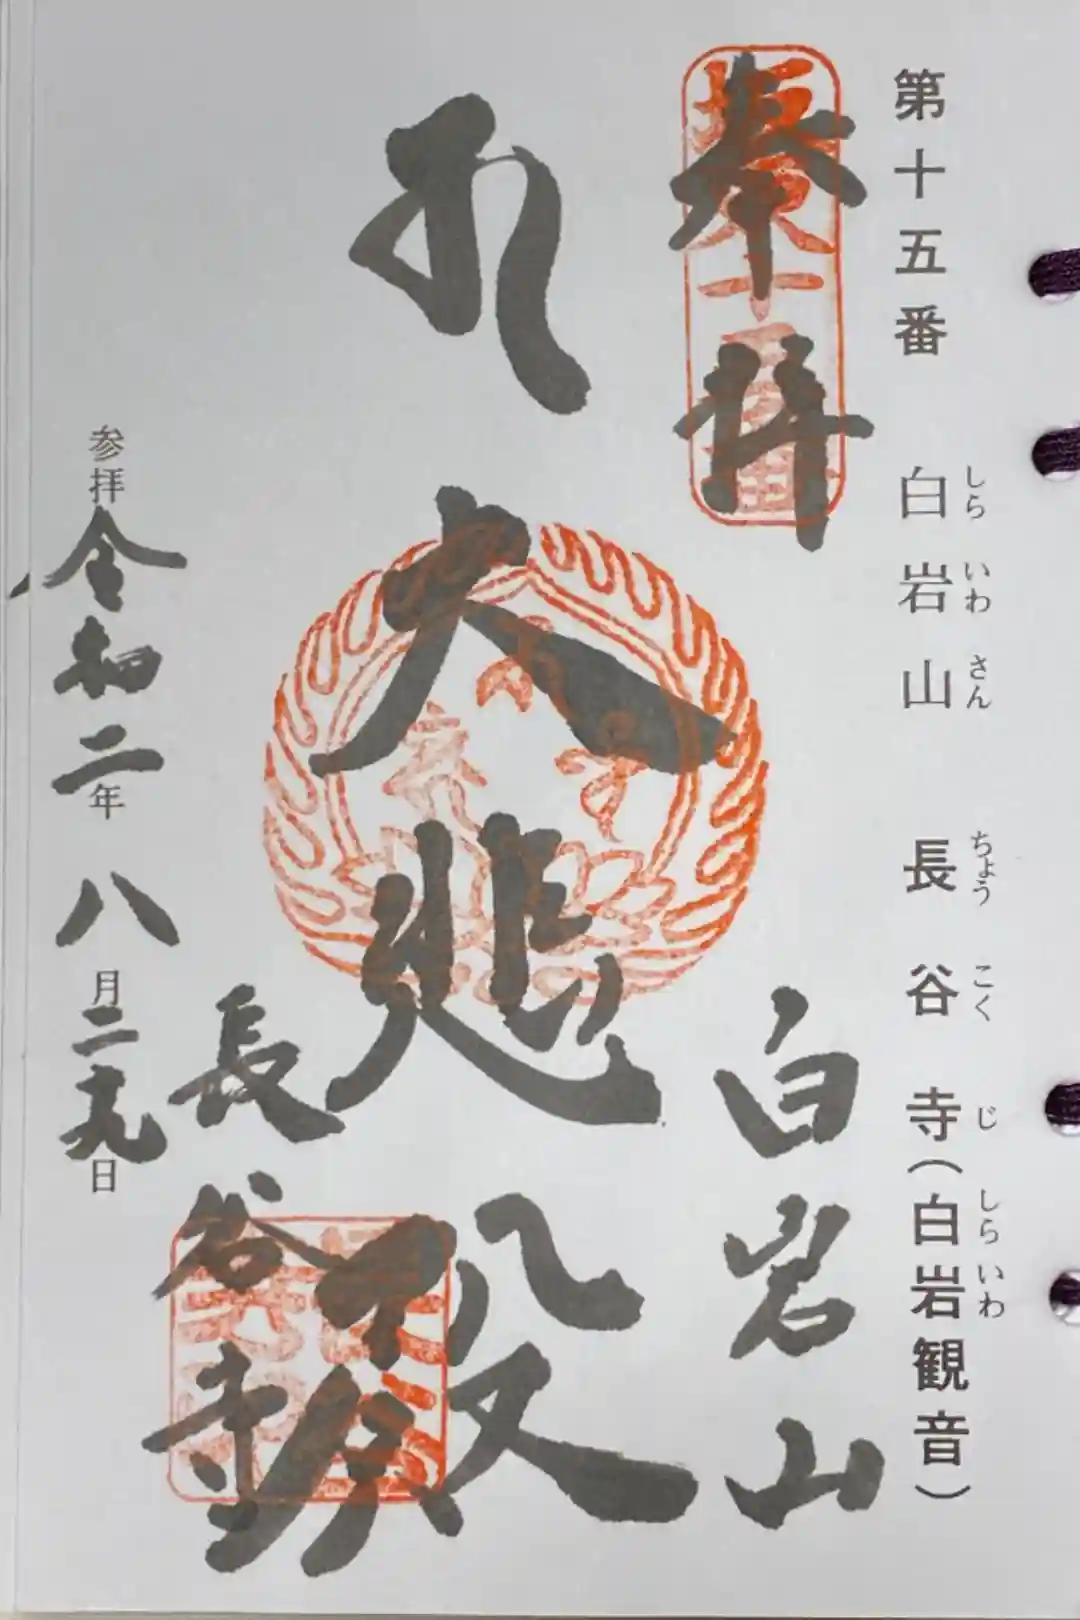 第十五番 白岩山 長谷寺(白岩観音)
しらいわさん ちょうこくじ しらいわ
奉拝
坂東十五番
白岩山
大悲殿
長谷寺
参拝令和二年八月二十九日